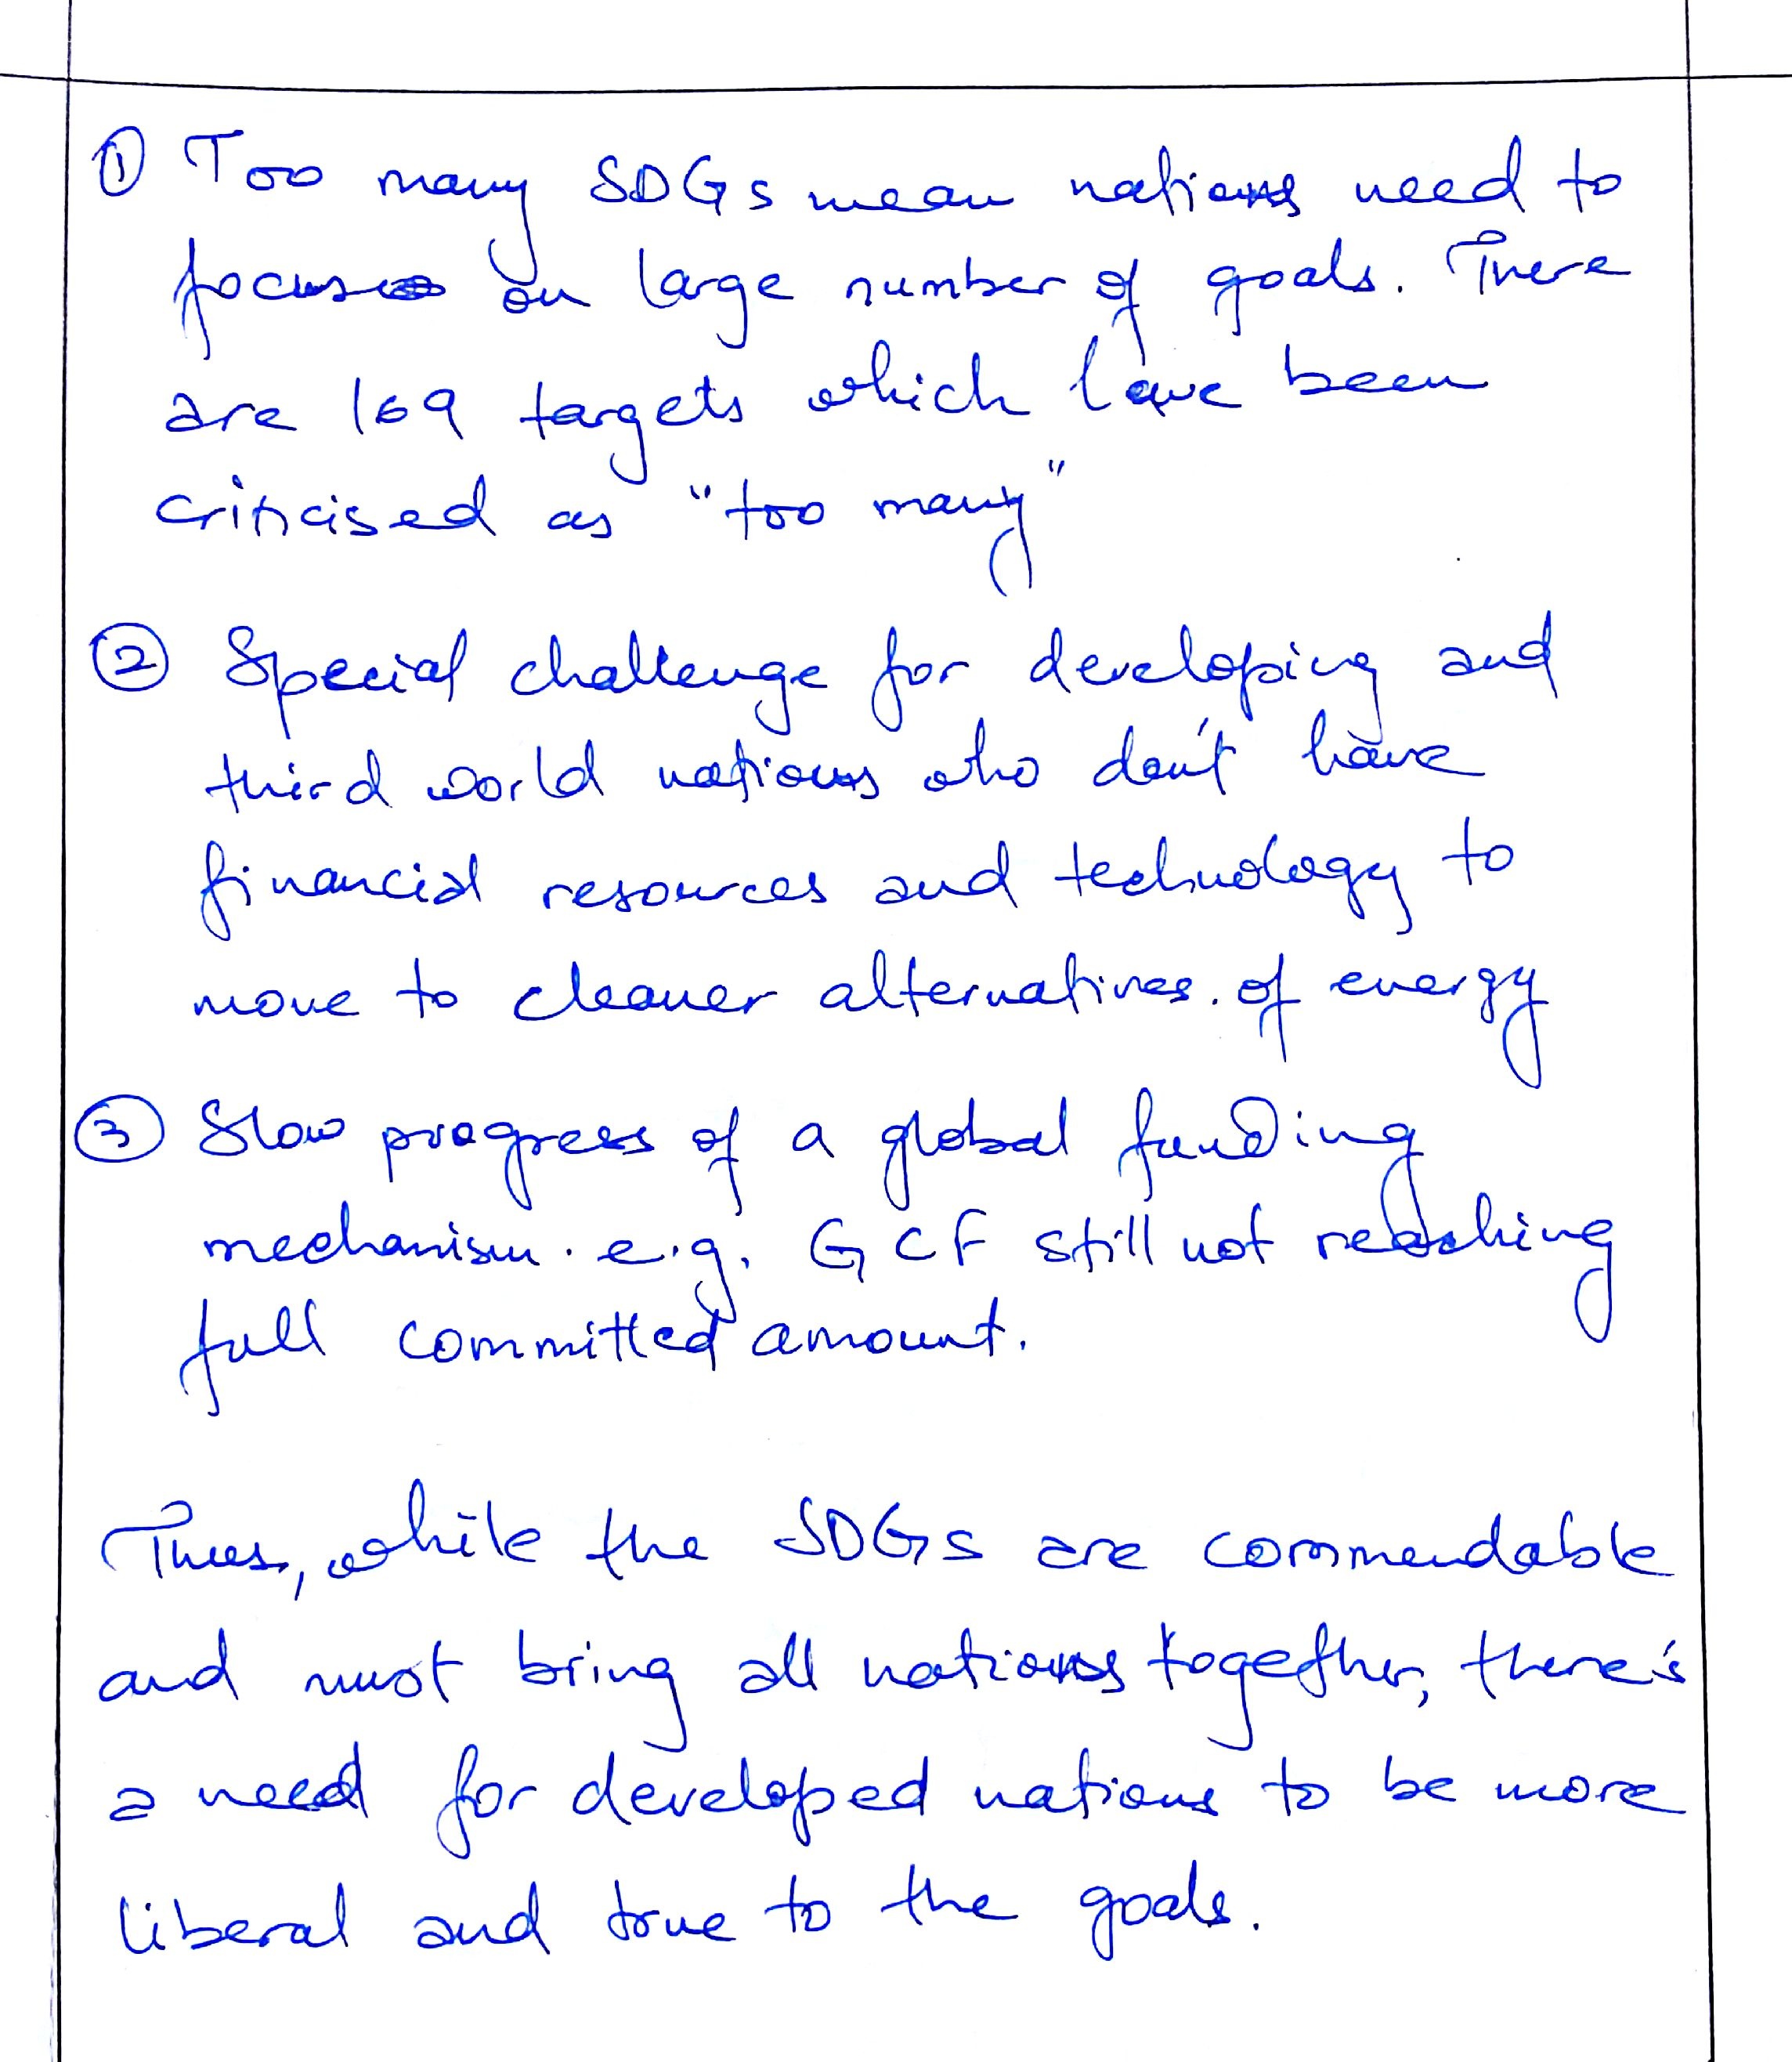 ① Too many SDGs mean nations need to
focus on large number of goals. There
are 169 targets which have been
criticised as "too many"
② Special challenge for developing and
third world nations who don't have
financial resources and technology to
move to cleaner alternatives. of energy
③ Slow progress of a global funding
mechanism. e.g. GCF still not reaching
full committed amount.
Thus, while the SDGs are commendable
and must bring all nations together, there's
a need for developed nations to be more
liberal and true to the goals.